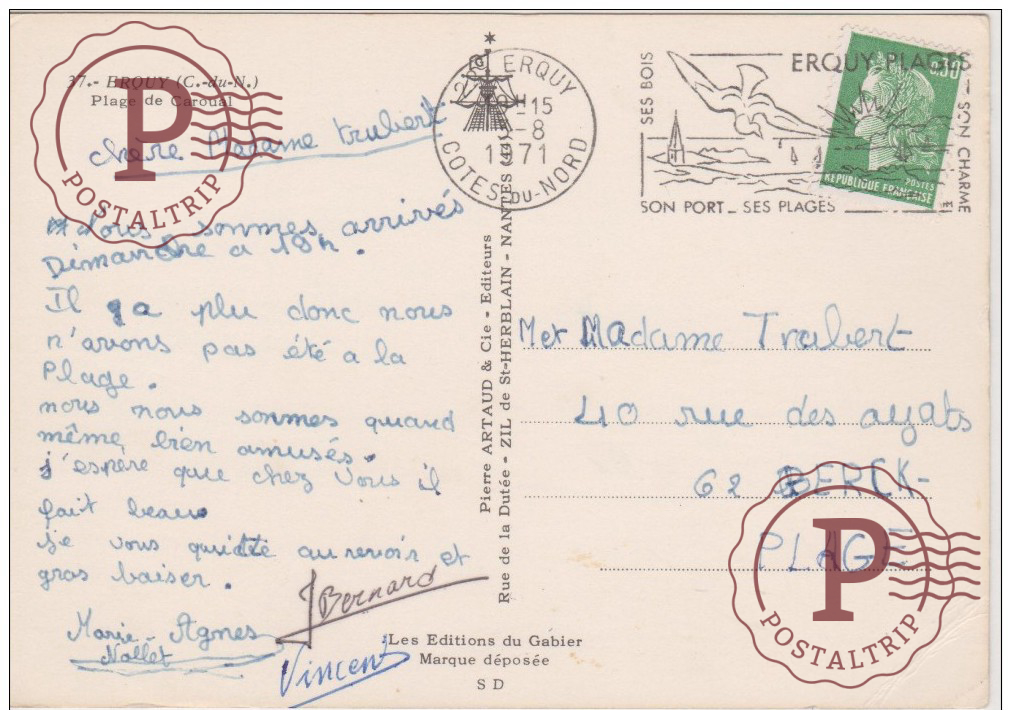 37.- ERQUY (C.-du-N.)
Plage de Caroual
chere Madame Trubert
Nous sommes arrivés
Dimanche a 19h.
Il ya plu donc nous
n'avons pas été a la
Plage.
nous nous sommes quand
même bien amusés.
j'espère que chez vous il
fait beau
je vous quitte au revoir et
gras baiser.
Marie-Agnes
Nollet
J Bernard
Vincent
Les Editions du Gabier
Marque déposée
S D
Pierre ARTAUD & Cie - Editeurs
Rue de la Dutée - ZIL de St-HERBLAIN - NANTES
ERQUY
-15
-8
1971
COTES-DU-NORD
SES BOIS
ERQUY PLAGES
SON CHARME
SON PORT_ SES PLAGES
0,30
POSTES
REPUBLIQUE FRANÇAISE
M et Madame Trubert
40 rue des oyats
62 BERCK-
PLAGE
P
POSTALTRIP
P
POSTALTRIP